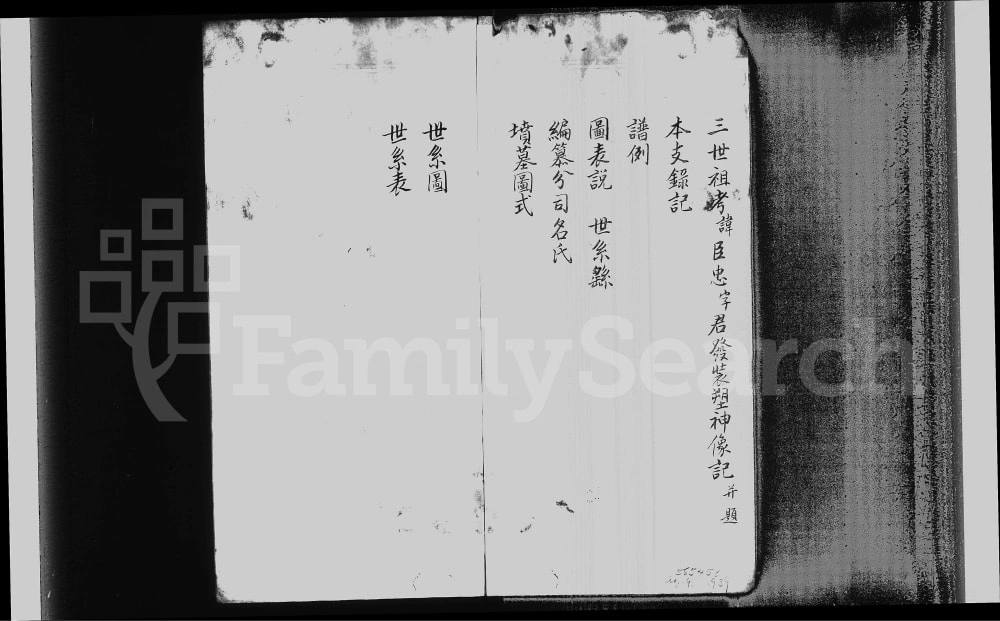 三世祖考諱臣忠字君發裝塑神像記并題
本支錄記
譜例
圖表説 世系繇
編纂分司名氏
墳墓圖式
世系圖
世系表
FamilySearch